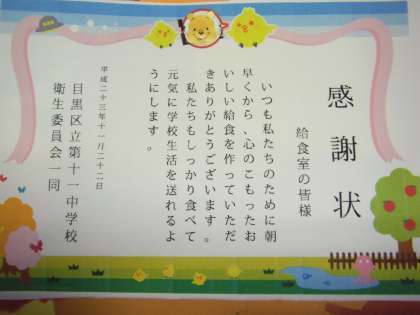 感謝状
給食室の皆様
いつも私たちのために朝
早くから、心のこもったお
いしい給食を作っていただ
きありがとうございます。
私たちもしっかり食べて
元気に学校生活を送れるよ
うにします。
平成二十三年十一月二十二日
目黒区立第十一中学校
衛生委員会一同